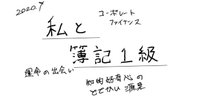 2020.9
私と
コーポレート
ファイナンス
簿記1級
運命の出会い
知的好奇心の
とてかい源泉